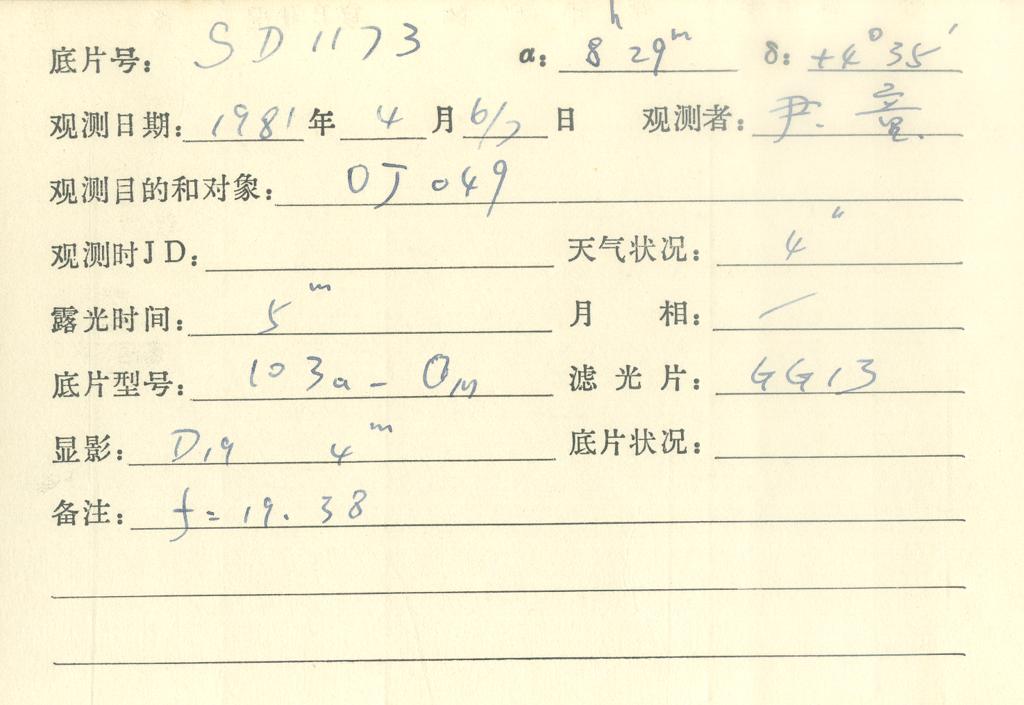 底片号: SD1173 α: 8ʰ29ᵐ δ: +4°35′
观测日期: 1981年 4月6/7日 观测者: 尹.
观测目的和对象: OJ 049
观测时JD: 天气状况: 4″
露光时间: 5ᵐ 月 相: —
底片型号: 103a-O 滤光片: GG13
显影: D19 4ᵐ 底片状况:
备注: f=19.38